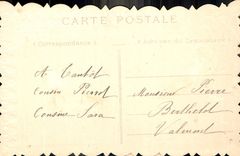 CARTE POSTALE
Correspondance
Adresse du Destinataire
A Cousin Pierrot
Cousine Sara
Monsieur Pierre
Berthelot
Valmont